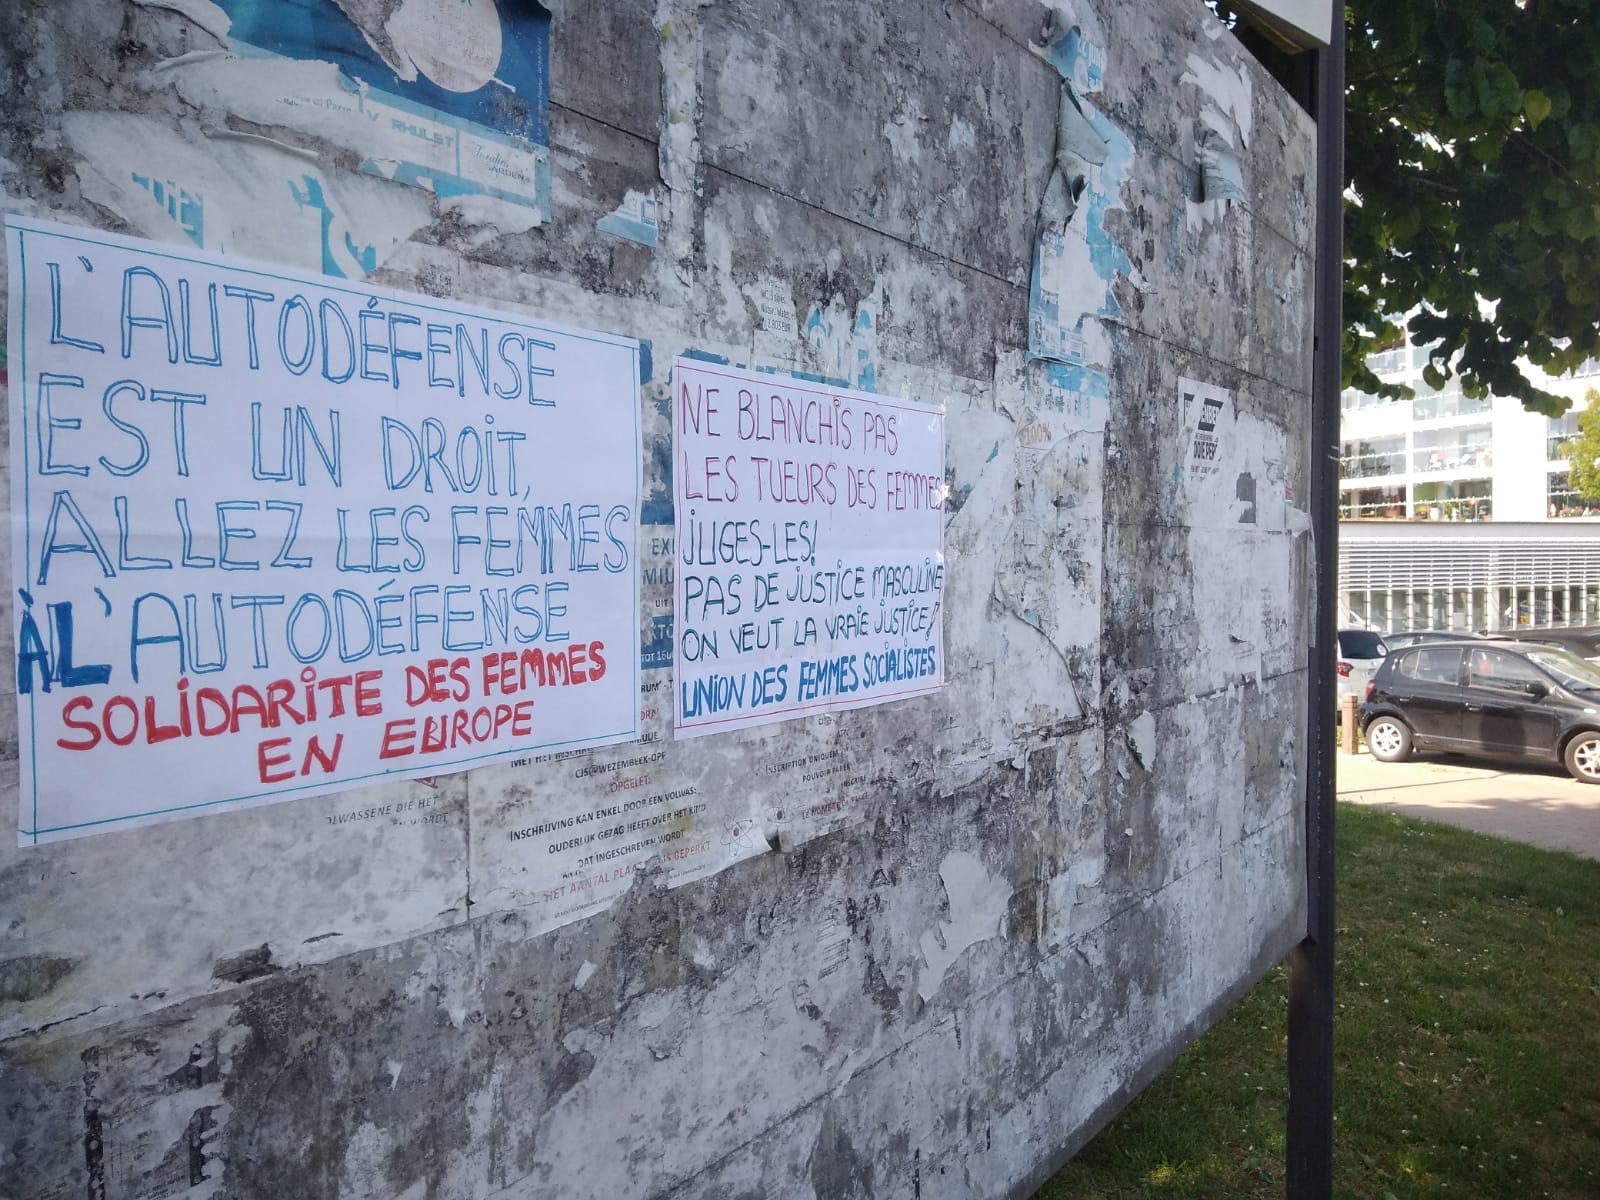 RHULST
GARDENS
L'AUTODÉFENSE
EST UN DROIT,
ALLEZ LES FEMMES
À L'AUTODÉFENSE
SOLIDARITE DES FEMMES
EN EUROPE
NE BLANCHIS PAS
LES TUEURS DES FEMMES
JUGES-LES!
PAS DE JUSTICE MASCULINE
ON VEUT LA VRAIE JUSTICE!
UNION DES FEMMES SOCIALISTES
100%
OPGELET:
INSCHRIJVING KAN ENKEL DOOR EEN
OUDERLIJK GEZAG HEEFT OVER HET KIND
DAT INGESCHREVEN WORDT
HET AANTAL IS BEPERKT
INSCRIPTION
POUVOIR
INSCRIT
DIE HET